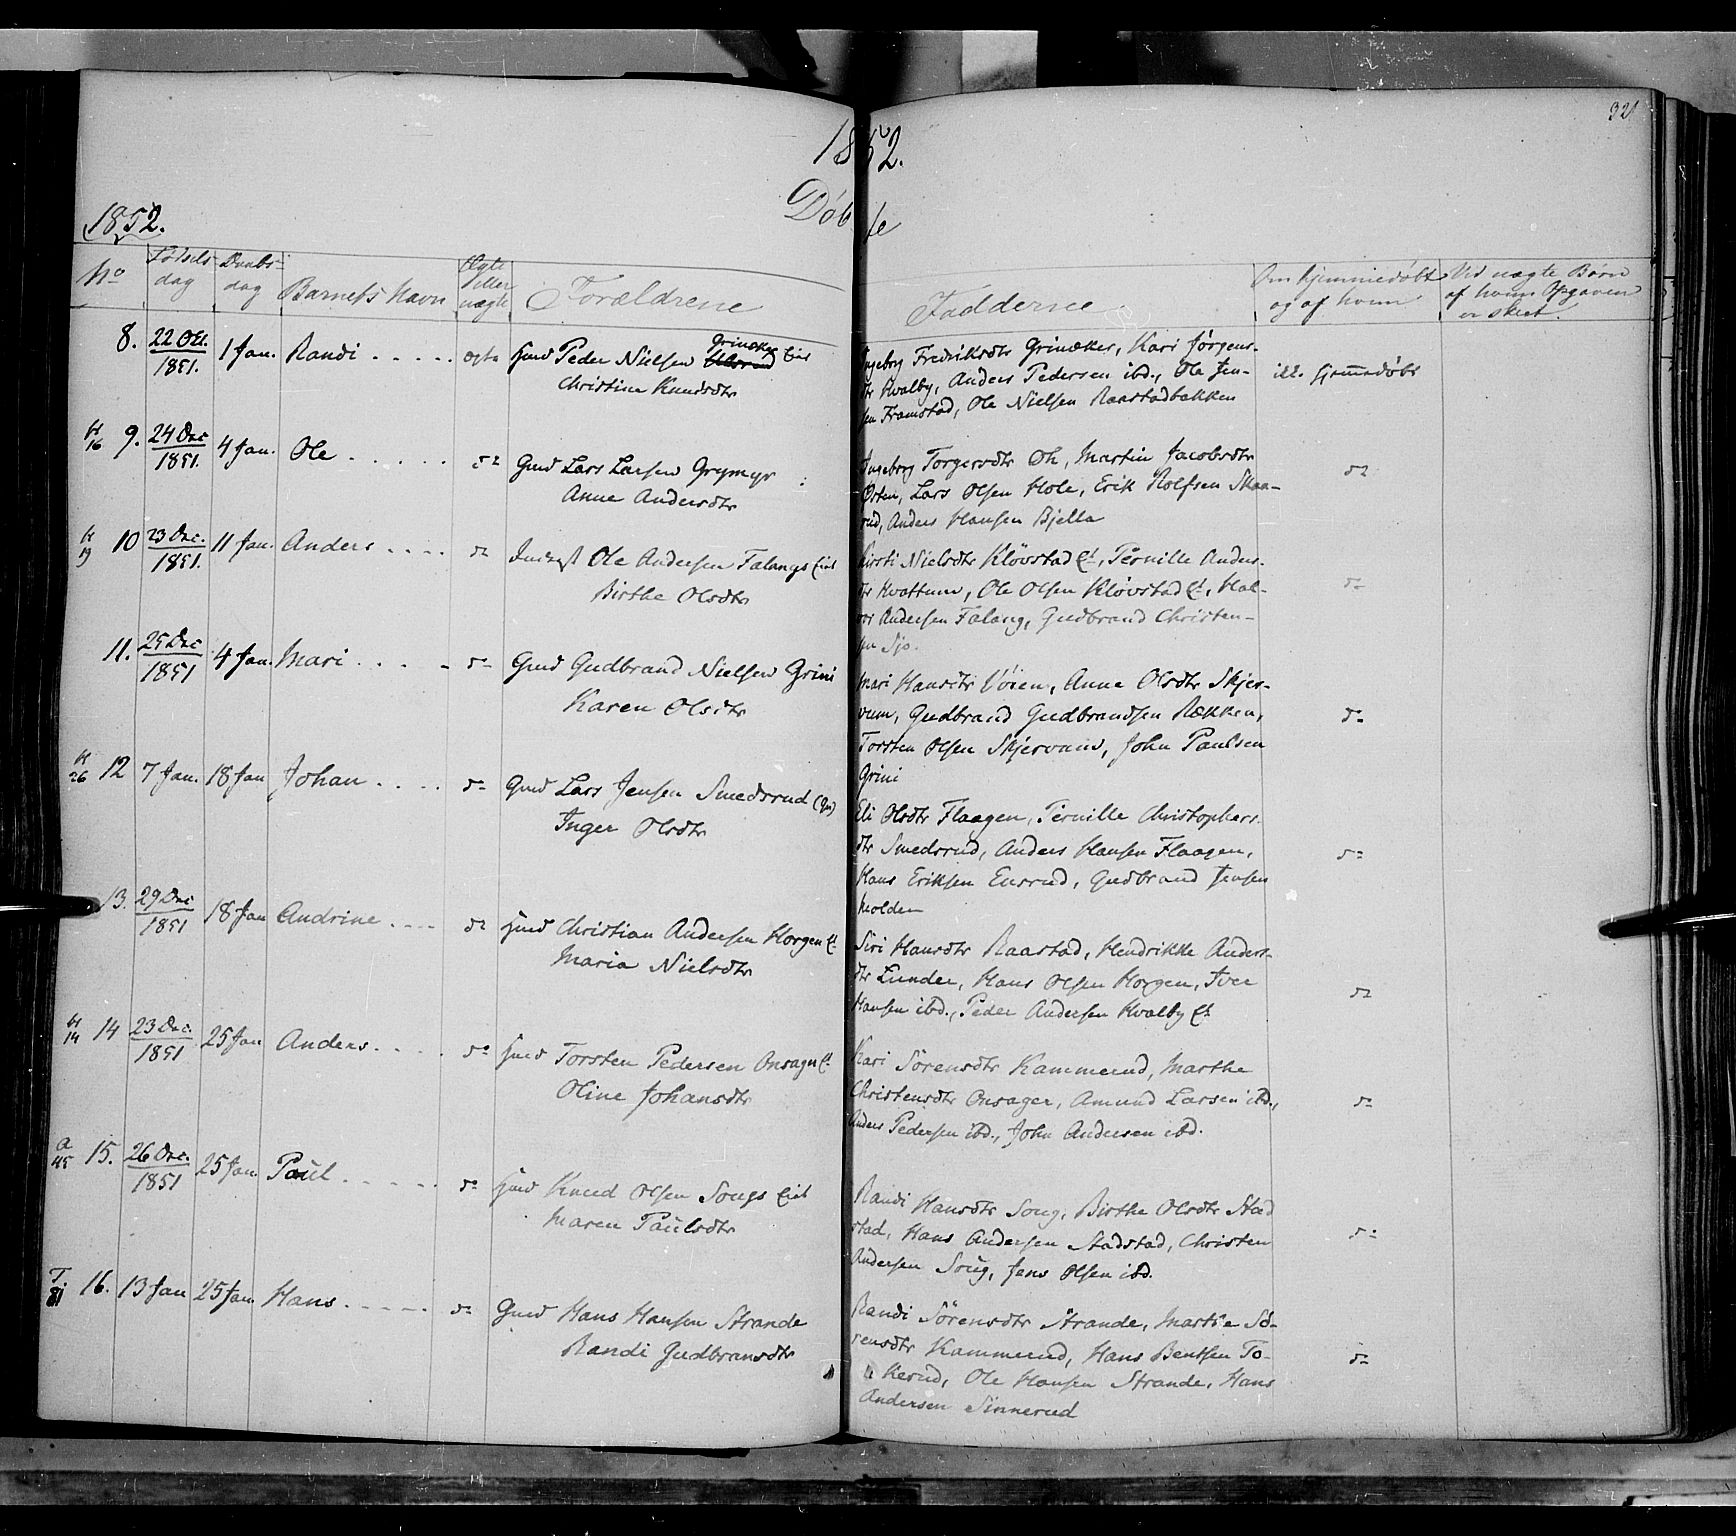 321
1852.
Døbte
1852.
No
Fødsels-
dag
Daabs-
dag
Barnets Navn
Ægte
eller
uægte
Forældrene
Fadderne
Om hjemmedøbt
og af hvem
Ved uægte Børn
af hvem Opgaven
er skeet.
8. 22 Oct. 1851. 1 Jan. Randi . . . . . ægte Huusmd Peder Nielsen Grinaker Eiet
Christine Knudsdtr
Ingeborg Fredriksdtr Grinaker, Kari Jørgens-
dtr Kvalby, Anders Pedersen ibd., Ole Jen-
sen Framstad, Ole Nielsen Raastadbakken
ikke hjemmedøbt
H 16 9. 24 Dec 1851. 4 Jan. Ole . . . . . do Gmd Lars Larsen Grymyr
Anne Andersdtr
Ingeborg Torgersdtr Oh, Martin Jacobsdtr
Østen, Lars Olsen Hole, Erik Rolfsen Skaa-
rud, Anders Hansen Bjella
do
H 19 10 23 Dec. 1851. 11 Jan. Anders . . . . do Inderst Ole Andersen Falangs Eiet
Birthe Olsdtr
Kirsti Nielsdtr Kløvstad Et., Pernille Anders-
dtr Kvattum, Ole Olsen Kløvstad Et., Hal-
vor Andersen Falang, Gudbrand Christen-
sen Sjo.
do
11. 25 Dec 1851 4 Jan. Mari . . . . do Gmd Gudbrand Nielsen Grini
Karen Olsdtr
Mari Hansdtr Vøien, Anne Olsdtr Skjer-
vum, Gudbrand Gudbrandsen Rækken,
Torsten Olsen Skjervum, John Paulsen
Grini
do
H 26 12 7 Jan. 18 Jan Johan . . . . do Gmd Lars Jensen Smedsrud (Gr)
Inger Olsdtr
Eli Olsdtr Flaagen, Pernille Christophers-
dtr Smedsrud, Anders Hansen Flaagen,
Hans Eriksen Ensrud, Gudbrand Jensen
Molden
do
13. 29 Dec 1851 18 Jan Andrine . . . . do Hmd Christian Andersen Horgen Et
Maria Nielsdtr
Siri Hansdtr Raastad, Hendrikke Anders-
dtr Lunder, Hans Olsen Horgen, Iver
Hansen ibd., Peder Andersen Kvalby Et
do
H 14 14 23 Dec. 1851 25 Jan Anders . . . . do Hmd Torsten Pedersen Onsager Et
Oline Johansdtr
Kari Sørensdtr Kammerud, Marthe
Christensdtr Onsager, Amund Larsen ibd.,
Anders Pedersen ibd., John Andersen ibd.
do
A 45 15. 26 Dec. 1851 25 Jan. Paul . . . . . do Hmd Knud Olsen Sougs Eiet
Maren Paulsdtr
Randi Hansdtr Soug, Birthe Olsdtr Stad
stad, Hans Andersen Stadstad, Christen
Andersen Soug, Jens Olsen ibd.
do
T 81 16. 13 Jan 25 Jan. Hans . . . . . do Gmd Hans Hansen Strande
Randi Gudbransdtr
Randi Sørensdtr Strande, Marthe Sø-
rensdtr Kammerud, Hans Bentsen To-
kerud, Ole Hansen Strande, Hans
Andersen Sinnerud
do